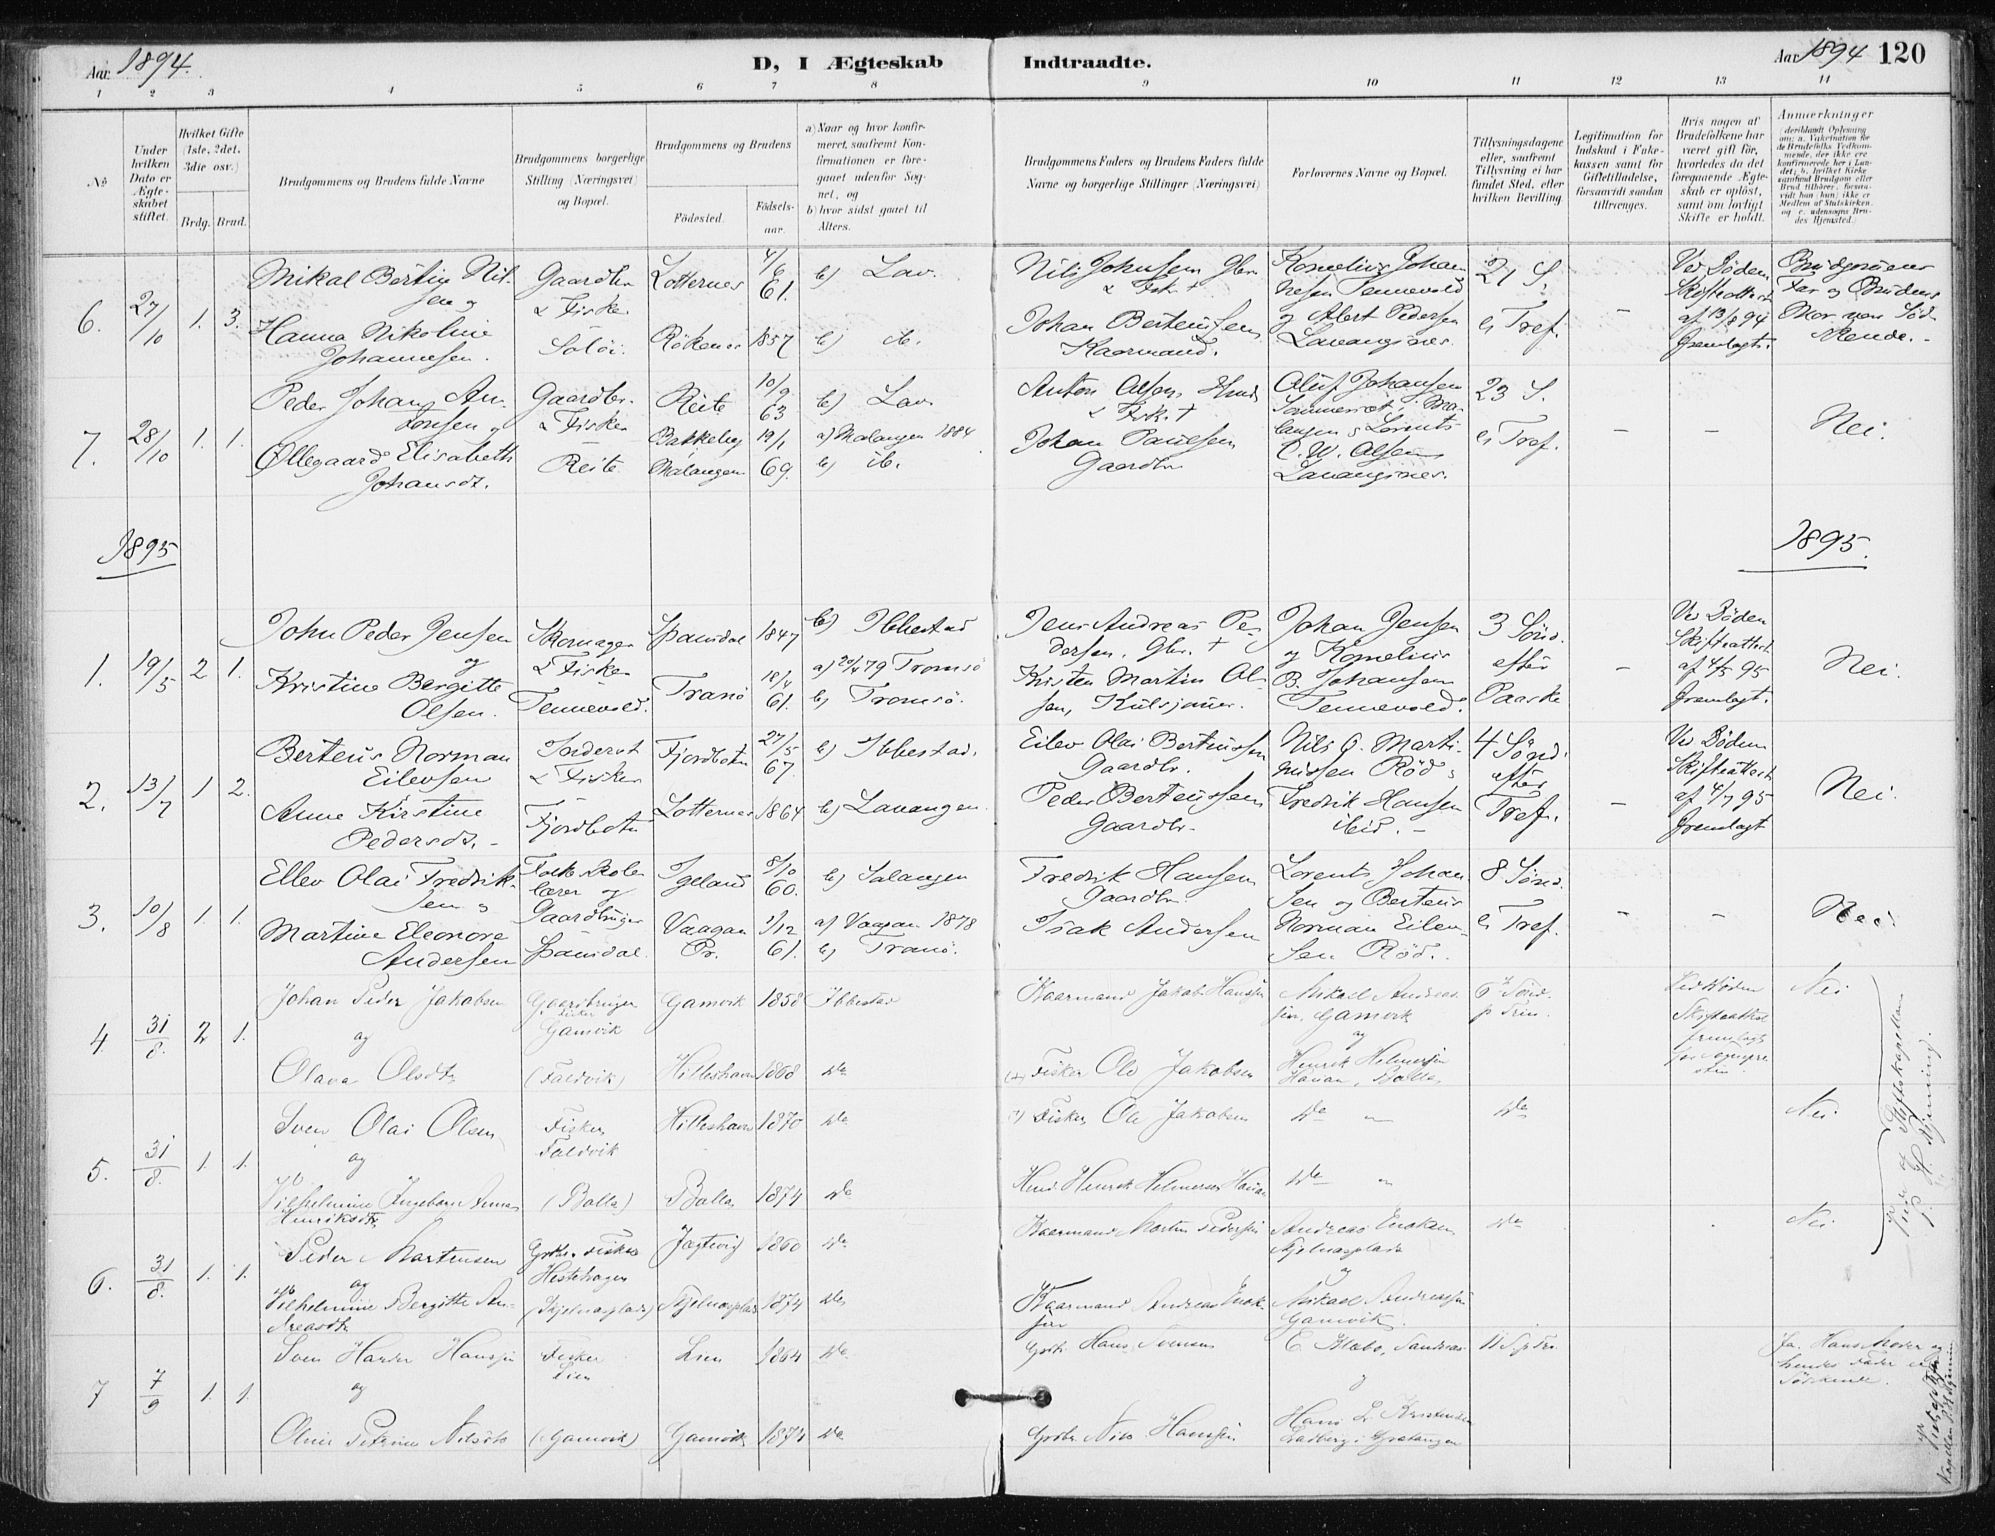 Aar 1894.
D, I Ægteskab Indtraadte.
Aar 1894 120
1 2 3 4 5 6 7 8 9 10 11 12 13 14
No
Under hvilken Dato er Ægteskabet stiftet.
Hvilket Gifte (1ste, 2det, 3die osv.)
Brdg. Brud.
Brudgommens og Brudens fulde Navne
Brudgommens borgerlige Stilling (Næringsvei) og Bopæl.
Brudgommens og Brudens
Födested. Födselsaar.
a) Naar og hvor konfirmeret, saafremt Konfirmationen er foregaaet udenfor Sognet, og
b) hvor sidst gaaet til Alters.
Brudgommens Faders og Brudens Faders fulde Navne og borgerlige Stillinger (Næringsvei)
Forlovernes Navne og Bopæl.
Tillysningsdagene eller, saafremt Tillysning ei har fundet Sted, efter hvilken Bevilling.
Legitimation for Indskud i Enkekassen samt for Giftetilladelse, forsaavidt saadan tiltrænges.
Hvis nogen af Brudefolkene har været gift før, hvorledes da det foregaaende Ægteskab er opløst, samt om lovligt Skifte er holdt.
Anmærkninger
6. 27/10 1. 3.
Mikal Bertin Nilsen og
Hanna Nikoline Johannesen.
Gaardbr. & Fisker
Soløi.
Lotternes 4/6 61. b) Lav.
Røkenes 1857 b) ib.
Nils Johnsen Gbr. & Fisk. †
Johan Berteussen Kaarmand.
Kornelius Johannesen Tennevold
og Albert Pedersen Lavangsnes.
21 S. e. Tref.
Ved Døden
Skifteattest
af 13/8 94
fremlagt.
Brudgommens
Far og Brudens
Mor var Sødskende.
7. 28/10 1. 1.
Peder Johan Antonsen og
Øllegaard Elisabeth Johansdt.
Gaardbr. & Fisker
Reite
Reite 10/9 63 b) Lav.
Bakkehug Malangen 19/1 69. a) Malangen 1884 b) ib.
Anton Olsen, Hmd & Fisk. †
Johan Paulsen Gaardbr
Oluf Johansen
Sommersæt i Malangen og Lorents
C. W. Olsen
Lavangsnes.
23 S. e. Tref.
Nei.
1895
1895.
1. 19/5 2 1.
John Peder Jensen og
Kristine Bergitte Olsen.
Skomager & Fisker
Tennevold.
Spansdal 1847 b) Ibbestad
Tranø 18/4 61. a) 20/4 79 Tromsø b) Tromsø.
Jens Andreas Pedersen, Gbr. †
Kristen Martin Olsen, Kulsjauer.
Johan Jensen og Kornelius
B. Johansen
Tennevold.
3 Sønd. efter Paaske
Ved Døden
Skifteattest
af 4/5 95
fremlagt.
Nei.
2. 13/7 1 2.
Berteus Norman Eilevsen
Anne Kirstine Pedersdt.
Inderst & Fisker
Fjordbotn
Fjordbotn 27/5 67. b) Ibbestad.
Lotternes 1864 b) Lavangen.
Eilev Olai Berteussen Gaardbr.
Peder Berteussen Gaardbr.
Nils O. Martinussen Rød og
Fredrik Hansen ibid.
4 Sønd. efter Tref.
Ved Døden
Skifteattest
af 4/7 95
fremlagt
Nei.
3. 10/8 1. 1.
Ellev Olai Fredriksen og
Martine Eleonore Andersen
Folkeskolelærer og
Gaardbruger
Spansdal.
Igeland 8/10 60. b) Salangen
Vaagan Pr. 1/12 61. a) Vaagan 1878 b) Tranø.
Fredrik Hansen Gaardbr.
Isak Andersen
Lorents Johansen og Berteus
Norman Eilevsen Rød.
8 Sønd. e. Tref.
Nei.
4. 31/8. 2 1.
Johan Peder Jakobsen
og
Olava Olsdtr
Gaardbruger Fisker
Gamvik
(Faldvik)
Gamvik 1858 Ibbestad
Hilleshavn 1868 do
Kaarmand Jakob Hanssen
(†) Fisker Ole Jakobsen
Mikael Andreassen, Gamvik
og
Henrik Helmersen
Havan, Balla.
6te Sønd. p Trin.
Ved Døden
Skifteattest
fremlagt
Nei
5. 31/8. 1. 1.
Sven Olai Olsen
og
Vilhelmine Ingebor Anna
Henriksdtr
Fisker
Faldvik
(Balla)
Hilleshavn 1870 do
Balla 1874 do
(†) Fisker Ole Jakobsen
Hmd Henrik Helmersen Havan
do
do
do
Nei.
6. 31/8. 1. 1.
Peder Martensen
og
Vilhelmine Bergitte Andreasdtr
Gbr. Fisker
Hestehagen
(Skjelnesplads)
Jagtvig 1860 do
Skjelnesplads 1874 do
Kaarmand Morten Pedersen
Kaarmand Andreas Enoksen
Andreas Enoksen
Skjelnesplads
og
Mikael Andreassen
Gamvik.
do
Nei.
7 7/9 1. 1.
Sven Harder Hanssen
og
Oline Petrine Nilsdtr
Fisker
Lien
(Gamvik)
Lien 1864 do
Gamvik 1874 do
Gbr. Hans Svensen
Gbr. Nils Hanssen
E. Klæbo, Sandnes
og
Hans L. Kristensen
Ladberg i Gratangen
11 S. p Tri.
Ja. Hans Moder og
hendes Fader er
Sødskende.